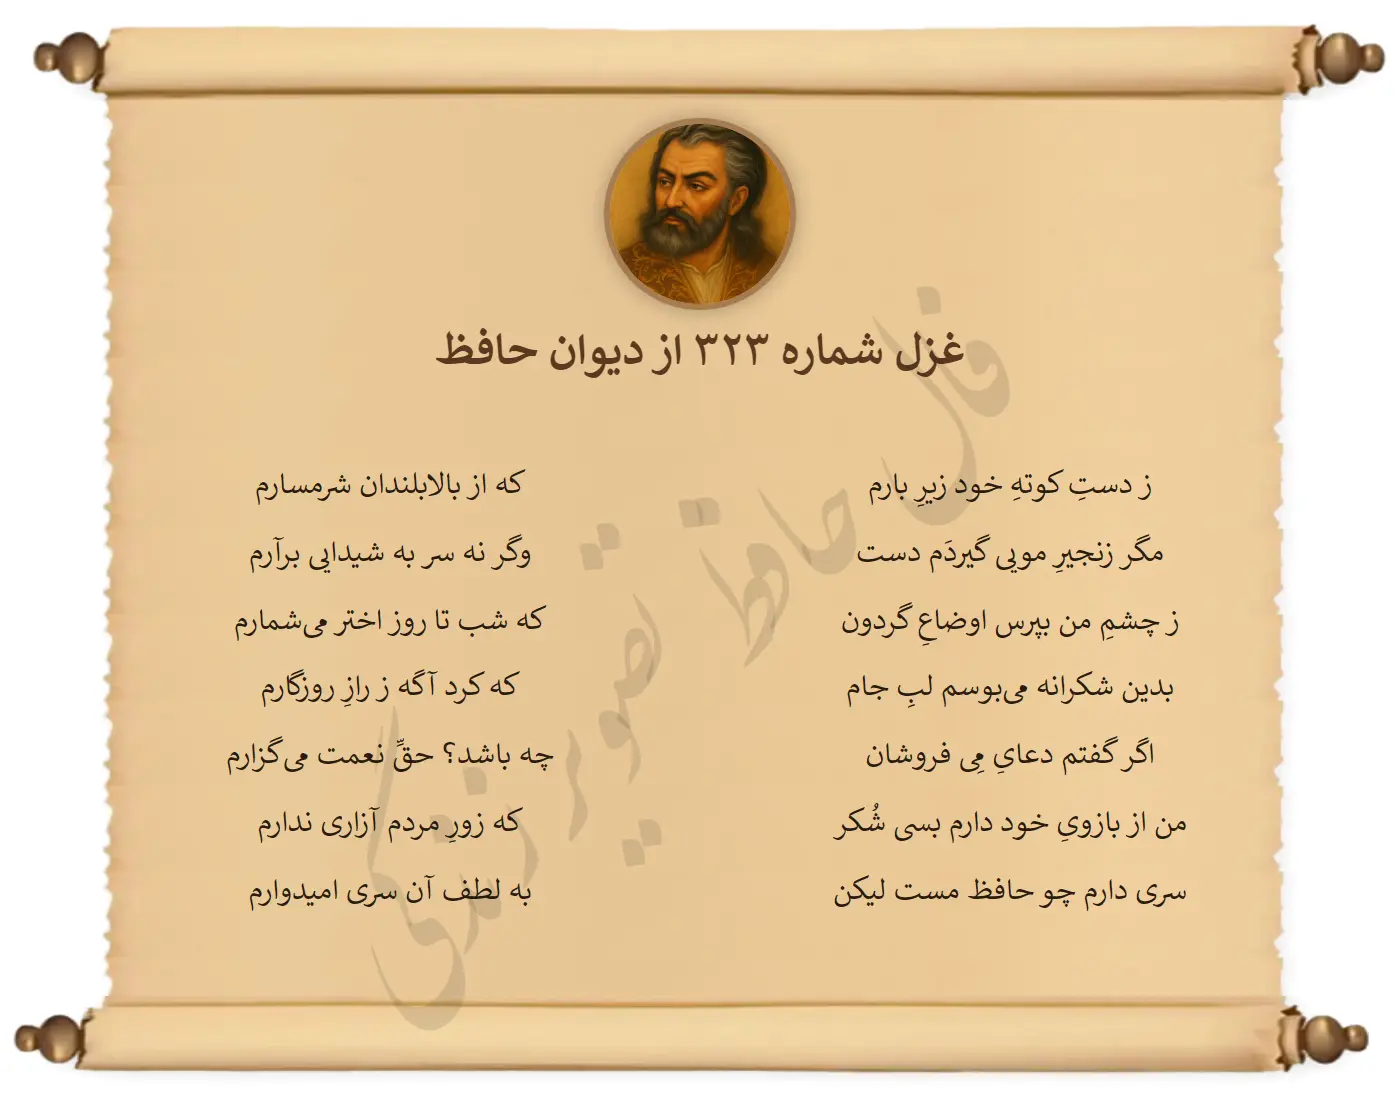 غزل شماره ۳۲۳ از دیوان حافظ
ز دستِ کوتهِ خود زیرِ بارم که از بالابلندان شرمسارم
مگر زنجیرِ مویی گیردَم دست وگر نه سر به شیدایی برآرم
ز چشمِ من بپرس اوضاعِ گردون که شب تا روز اختر می‌شمارم
بدین شکرانه می‌بوسم لبِ جام که کرد آگه ز رازِ روزگارم
اگر گفتم دعایِ مِی فروشان چه باشد؟ حقِّ نعمت می‌گزارم
من از بازویِ خود دارم بسی شُکر که زورِ مردم آزاری ندارم
سری دارم چو حافظ مست لیکن به لطف آن سری امیدوارم
فال حافظ تصویر زندگی